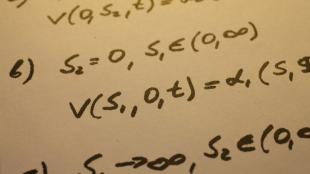 V(0, S₂, t) =
б) S₂ = 0, S₁ ∈ (0, ∞)
V(S₁, 0, t) = α₁ (S₁
S₁ → ∞, S₂ ∈ (0,